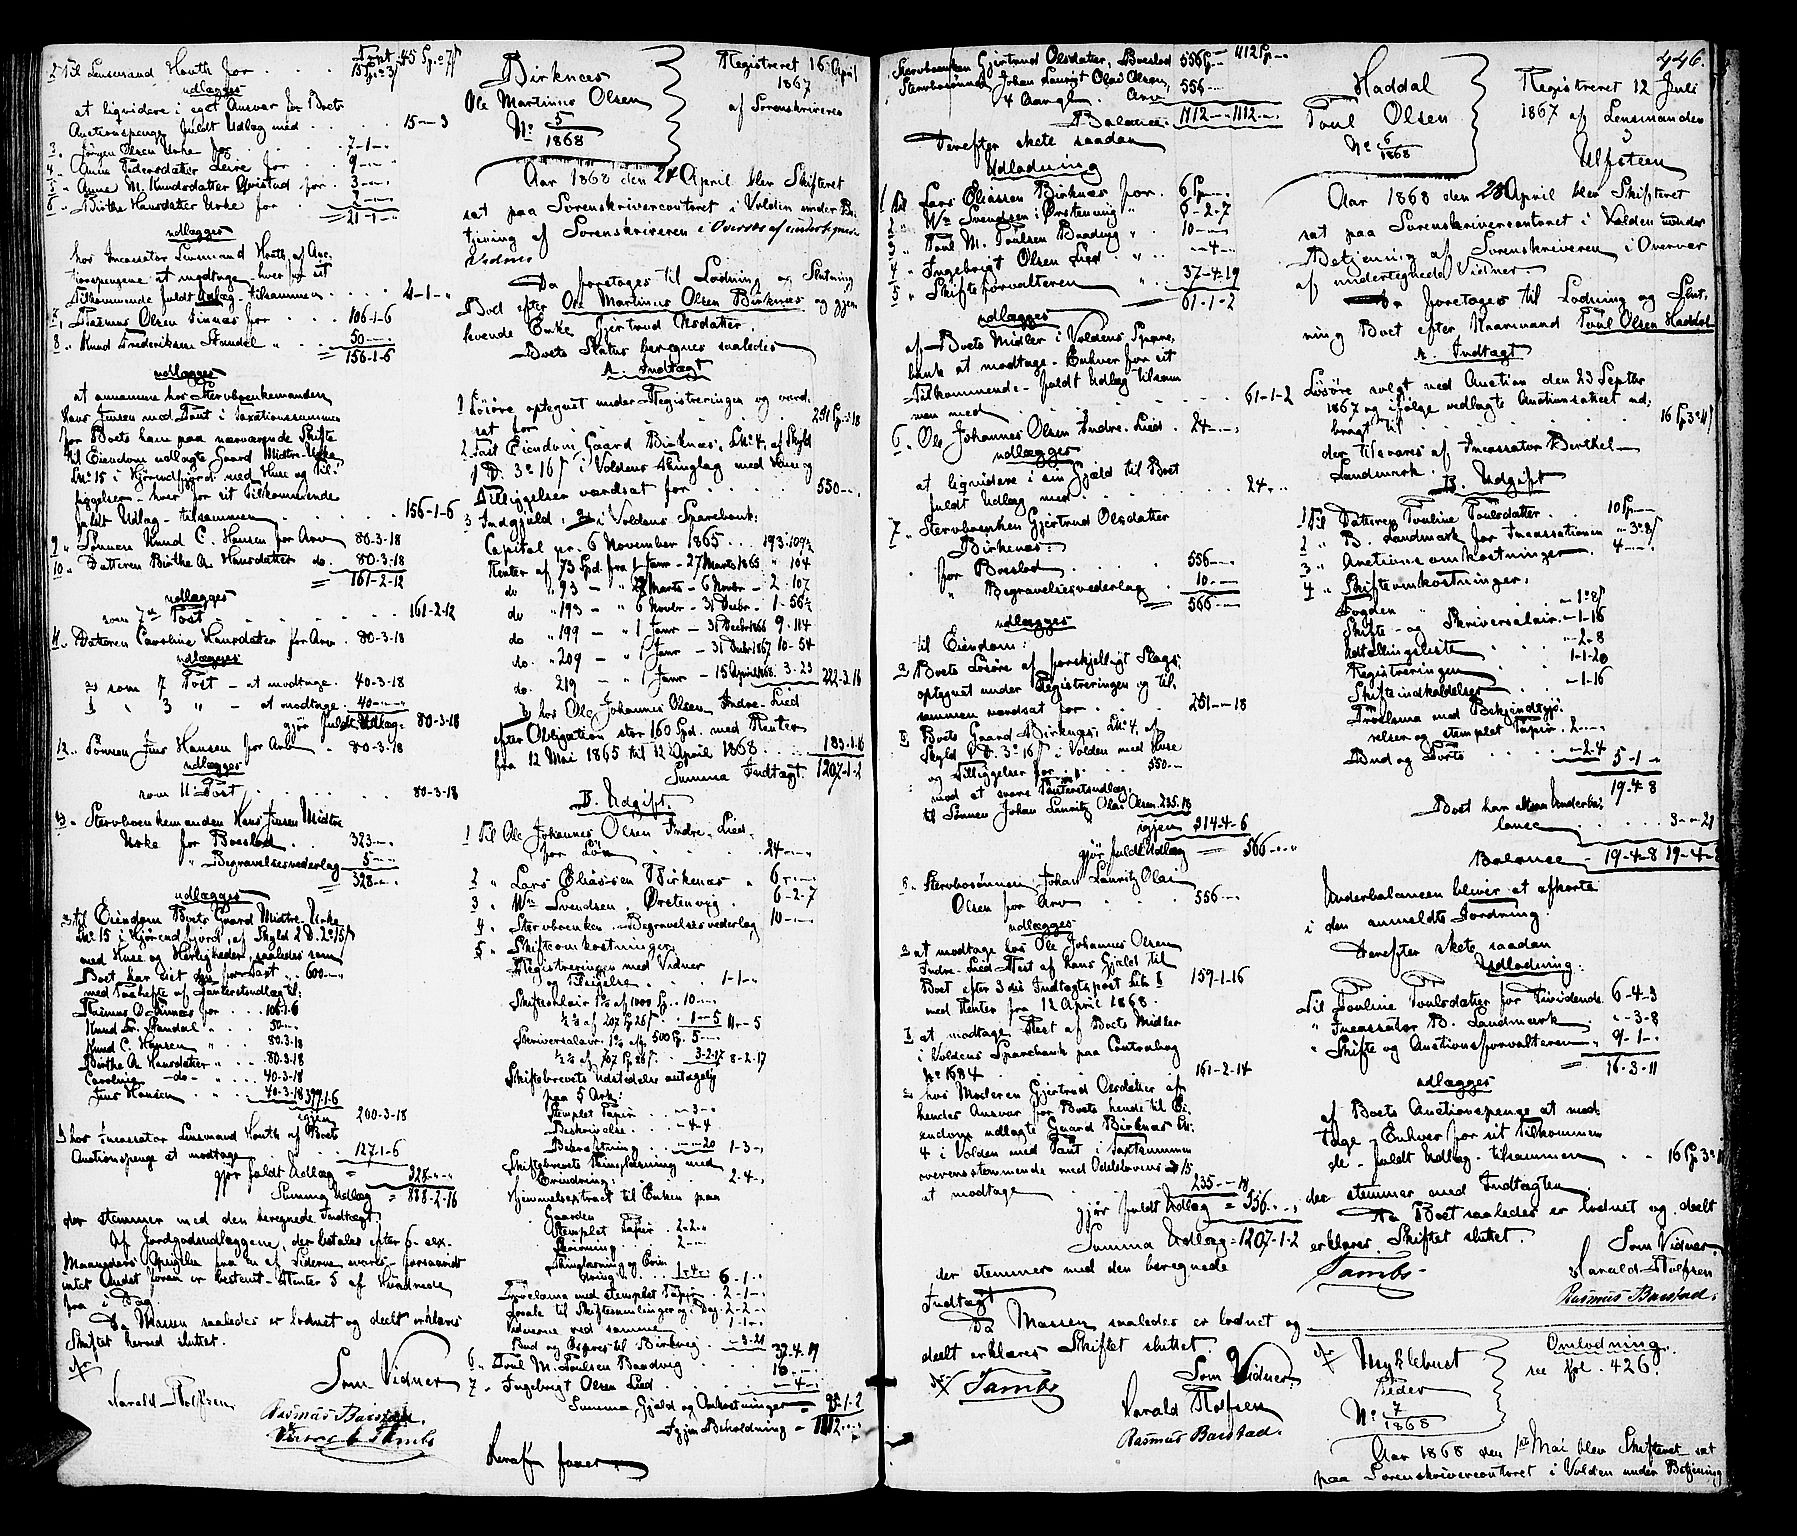 Transpt. 45 Sp.o 7/
2. Til Lensmand Houth for . . . 15 Sp. o 3/
udlægges
at liqvidere i eget Ansvar for Boets
Auctionspenge fuldt Udlæg med . . . 15 - - 3
3. Jørgen Olsen Urke for . . 7 - 1 -
4. Anne Pedersdatter Leire for . . 9 - -
5. Anne M. Knudsdatter Qvistad for . 3 - -
6. Birthe Hansdatter Urke for . . 2 - -
= 21 - 1 -
udlægges
hos Incassator Lensmand Houth af Auc-
tionspengene at modtage - hver for sit
Tilkommende fuldt Udlæg - tilsammen . . 21 - 1 -
7. Rasmus Olsen Finnæs for . . 106-1-6
8. Knud Frederiksen Standal . . 50 - -
= 156-1-6
udlægges
at annamme hos Stervboenkemanden
Hans Jensen med Pant i Taxationssummen
for Boets ham paa nærværende Skifte
til Eiendom udlagte Gaard Midtre-Urke
Lno 15 i Hjørundfjord med Huse og Til-
liggelser - hver for sit Tilkommende
fuldt Udlæg - tilsammen . . . 156-1-6
9. Sønnen Knud C. Hansen for Arv 80-3-18
10. Datteren Birthe A. Hansdatter do. 80-3-18
= 161-2-12
udlægges
som 7de Post . . . 161-2-12
11. Datteren Caroline Hansdatter for Arv . 80-3-18
udlægges
2 som 7 Post - at modtage . 40-3-18
1 " 3 " - at modtage . 40 - -
gjør fuldt Udlæg. 80-3-18
12. Sønnen Jens Hansen for Arv . 80-3-18
udlægges
som 11 Post . . . 80-3-18
13. Stervboenkemanden Hans Jensen Midtre
Urke for Boeslod . . 323 - -
" Begravelsesvederlag 5 - -
= 328 - -
udlægges
til Eiendom Boets Gaard Midtre-Urke
Lno 15 i Hjørundfjord, af Skyld 2 D. 2o 15/
med Huse og Herligheder, saaledes som
Boet har eiet den for Taxt . . 600 - -
med Paahefte af Panteretsudlæg til:
Rasmus O Finnæs for . . . 106-1-6
Knud Fr. Standal " . . . 50 - -
Knud C. Hansen " . . . 80-3-18
Birthe A. Hansdatter " . . 80-3-18
Caroline - do - " . . 40-3-18
Jens Hansen " . . 40-3-18 399-1-6
igjen 200-3-18
hos Incassator Lensmand Houth af Boets
Auctionspenge at modtage . . . 127-1-6
gjør fuldt Udlæg = 328 - -
Summa Udlæg = 888-2-16
der stemmer med den beregnede Indtægt,
Af Jordgodsudlæggene, der betales efter 6- sex-
Maaneders Opsigelse fra en af Siderne svares - forsaavidt
intet Andet foran er bestemt - Renter 5 af Hundrede
fra i Dag
Da Massen saaledes er lodnet og deelt erklæres
Skiftet herved sluttet.
Som Vidner
Harald Rolfsen
Rasmus Baastad.
Tambs
Birknæs
Ole Martinus Olsen
No 5/1868
Registreret 16 April
1867
af Sorenskriveren
Aar 1868 den 24 April blev Skifteret
sat paa Sorenskrivercontoret i Volden under Be-
tjening af Sorenskriveren i Overvær af undertegnede
Vidner
Da foretoges til Lodning og Slutning
Boet efter Ole Martinus Olsen Birknæs og gjen-
levende Enke Gjertrud Olsdatter.
Boets Status beregnes saaledes
A. Indtægt
1 Løsøre optegnet under Registreringen og vurde-
sat for . . . 251 Sp. - 18
2. Fast Eiendom Gaard Birknæs, Lno 4, af Skyld
1 D. 3o 16/ i Voldens Thinglag med Huse og
Tilliggelser værdsat for . . . 550 - -
3 Indgjæld: a) i Voldens Sparebank:
Capital pr. 6 November 1865 . . . 193-109½
Renter af 73 Spd. fra 1 Janr - 27 Marts 1865 " 104
do " 93 - " 28 Marts - 6 Novbr - 2 - 107
do " 193 - " 6 Novbr - 31 Decbr - 1 - 56½
do " 199 - " 1 Janr - 31 Decbr 1866 9 - 114
do. " 209 - " 1 Janr - 31 Decbr 1867 10 - 54
do. 219 - " 1 Janr - 15 April 1868. 3 - 23 222-2-16
b) hos Ole Johannes Olsen Indre-Lied
efter Obligation stor 160 Spd. med Renter
fra 12 Mai 1865 til 12 April 1868 . . . 183-1-6
Summa Indtægt. 1207-1-2
B. Udgift.
1 Til Ole Johannes Olsen Indre-Lied
for Løn . . . 24 - -
2 " Lars Eliassen Birknæs . 6 - -
3 " Wm Svendsen, Ørstenvig . 6-2-7
4 " Stervboenken. Begravelsesvederlag 10 - -
5 " Skifteomkostninger
Registreringen med Vidner
og Følgelse . . . 1 - 1 -
Skiftesalair 1% af 1000 Sp. 10 - -
½% af 207 Sp 26/ . . 1 - 5 11 - - 5
Skriversalair. 1% af 500 Sp. 5 - -
½% af 707 Sp 26/. . 3-2-17 8-2-17
Skiftebrevets Udstedelse antagelig
paa 5 Ark:
Stemplet Papir . . - 3 -
Beskrivelse . . - 4 - 4
Bekræftning . . - - 20 1 - 3 -
Skiftebrevets Thinglæsning med
Erindring: . . . 2 - 4 -
Hjemmelsextract til Enken paa
Gaarden
Stemplet Papir . 2 - 2 -
Skrivning . . 2 - -
Thinglæsning og Erin-
dring . . . 1 - 4 - 6 - 1 -
Proclama med stemplet Papir . 2 - 1 -
Locale til Skiftesamlinger og . Dag. 2 - 2 -
Vidnerne ved samme . . 1 - 1 -
Bud og Expres til Birkvig . . - 3-21 37-4-19
6 " Poul M. Poulsen Baadvig . . . 10 - -
7 " Ingebrigt Olsen Lied . . . - 4 -
Summa, Gjæld og Omkostninger = 95-1-2
Igjen Beholdning = 1112 - -
Heraf faaer
446.
Stervboenken Gjertrud Olsdatter, Boeslod 556 Sp - - 1112 Sp - -
Stervbosønnen Johan Lauritz Olai Olsen,
4 Aar gl. Arv 556 - -
Balance. 1112 - - 1112 - -
Derefter skete saadan
Udlodning
1 Til Lars Eliassen Birknæs for . 6 Sp - -
2 " Wm Svendsen i Ørstenvig " . 6-2-7
3 " Poul M. Poulsen Baadvig " . 10 - -
4 " Ingebrigt Olsen Lied " . - 4 -
5 " Skifteforvalteren " . 37-4-19
61-1-2
udlægges
af Boets Midler i Voldens Spare-
bank at modtage - Enhver for sit
Tilkommende - fuldt Udlæg tilsam-
men med . . . 61-1-2
6. Ole Johannes Olsen Indre-Lied . 24 - -
udlægges
at liqvidere i sin Gjæld til Boet
fuldt Udlæg med . . . 24 - -
7. Stervboenken Gjertrud Olsdatter
Birknæs:
for Boeslod . . . 556 - -
" Begravelsesvederlag . 10 - -
= 566 - -
udlægges
til Eiendom:
a Boets Løsøre af forskjelligt Slags,
optegnet under Registreringen og til-
sammen værdsat for . . . 251 - - 18
b Boets Gaard Birknæs, Lno 4, af
Skyld 1 D. 3o 16/ i Volden med Huse
og Tilliggelser for . . . 550 - -
med at svare Panteretsudlæg
til Sønnen Johan Lauritz Olai Olsen. 235-18
igjen 314-4-6
gjør fuldt Udlæg = 566 - -
8. Stervbosønnen Johan Lauritz Olai
Olsen for Arv . . 556 - -
udlægges
a at modtage hos Ole Johannes Olsen
Indre-Lied Rest af hans Gjæld til
Boet efter 3die Indtægtspost Litr. b
med Renter fra 12 April 1868 . 159-1-16
b at modtage Rest af Boets Midler
i Voldens Sparebank paa Contrabog
No 1684 . . . 161-2-14
c hos Moderen Gjertrud Olsdatter af
hendes Ansvar for Boets hende til Ei-
endom udlagte Gaard Birknæs Lno
4 i Volden med Pant i Taxtsummen
overensstemmende med Oddelovens § 15
at modtage . . . 235 - - 18
gjør fuldt Udlæg = 556 - -
Summa Udlæg = 1207-1-2
der stemmer med den beregnede
Indtægt
Da Massen saaledes er lodnet og
deelt erklæres Skiftet sluttet.
Tambs
Som Vidner.
Harald Rolfsen
Rasmus Baastad.
Haddal
Poul Olsen
No 6/1868
Registreret 12 Juli
1867 af Lensmanden
Ulfsteen
Aar 1868 den 28 April blev Skifteret
sat paa Sorenskrivercontoret i Volden under
Betjening af Sorenskriveren i Overvær
af undertegnede Vidner
Da foretoges til Lodning og Slut-
ning Boet efter Huusmand Poul Olsen Haddal
A. Indtægt
Løsøre solgt ved Auction den 23 Septbr
1867 og ifølge vedlagte Auctionsakeet ud-
bragt til . . . 16 Sp 3o 11/
der tilsvares af Incassator Berthel
Landmark.
B. Udgift
1 Til Datteren Pouline Poulsdatter . 10 Sp - -
2 " B. Landmark for Incassationen " - 3o 8/
3 " Auctionsomkostninger . 4 - -
4 " Skifteomkostninger,
Fogden " . . - 1o 8/
Skifte- og Skriversalair. - 1-16
Udtællingsliste . . . - 2-8
Registreringen . . . 1-1-20
Skifteindkaldelser . . - 1-16
Proclama med Bekjendtgjø-
relser og stemplet Papir. 2 - -
Bud og Porto . . . - 2-4 5 - 1 -
19-4-8
Boet har altsaa Underba-
lance . . . 3 - - 21
Balance - 19-4-8 19-4-8
Underbalancen bliver at afkorte
i den anmeldte Fordring.
Derefter skete saadan
Udlodning:
Til Pouline Poulsdatter for Dividende. 6-4-3
" Incassator B. Landmark . " - 3-8
" Skifte og Auctionsforvalteren " 9 - 1 -
16-3-11
udlægges
af Boets Auctionspenge at mod-
tage - Enhver for sit Tilkommen-
de - fuldt Udlæg - tilsammen . . 16 Sp 3o 11
der stemmer med Indtægten
Da Boet saaledes er lodnet og deelt
erklæres Skiftet sluttet.
Tambs
Som Vidner.
Harald Rolfsen
Rasmus Baastad.
Myklebust
Peder
No 7/1868
Omlodning.
se fol. 426.
Aar 1868 den 1ste Mai blev Skifteret sat
paa Sorenskrivercontoret i Volden under Betjening